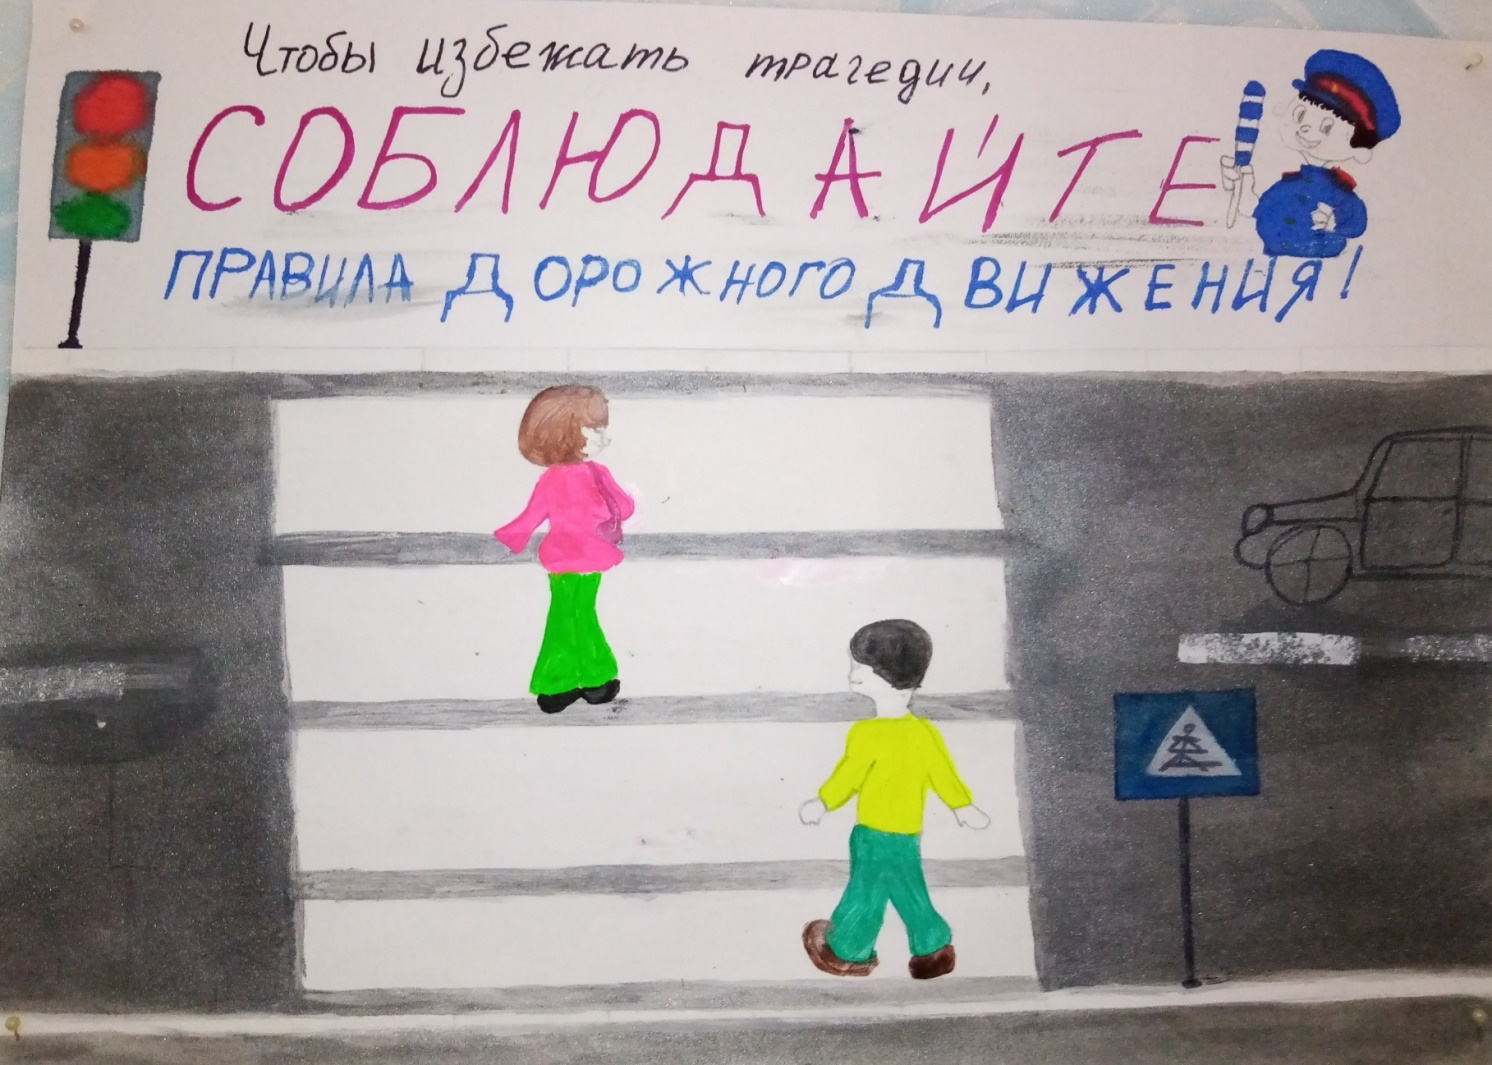 Чтобы избежать трагедии,
СОБЛЮДАЙТЕ
ПРАВИЛА ДОРОЖНОГО ДВИЖЕНИЯ!